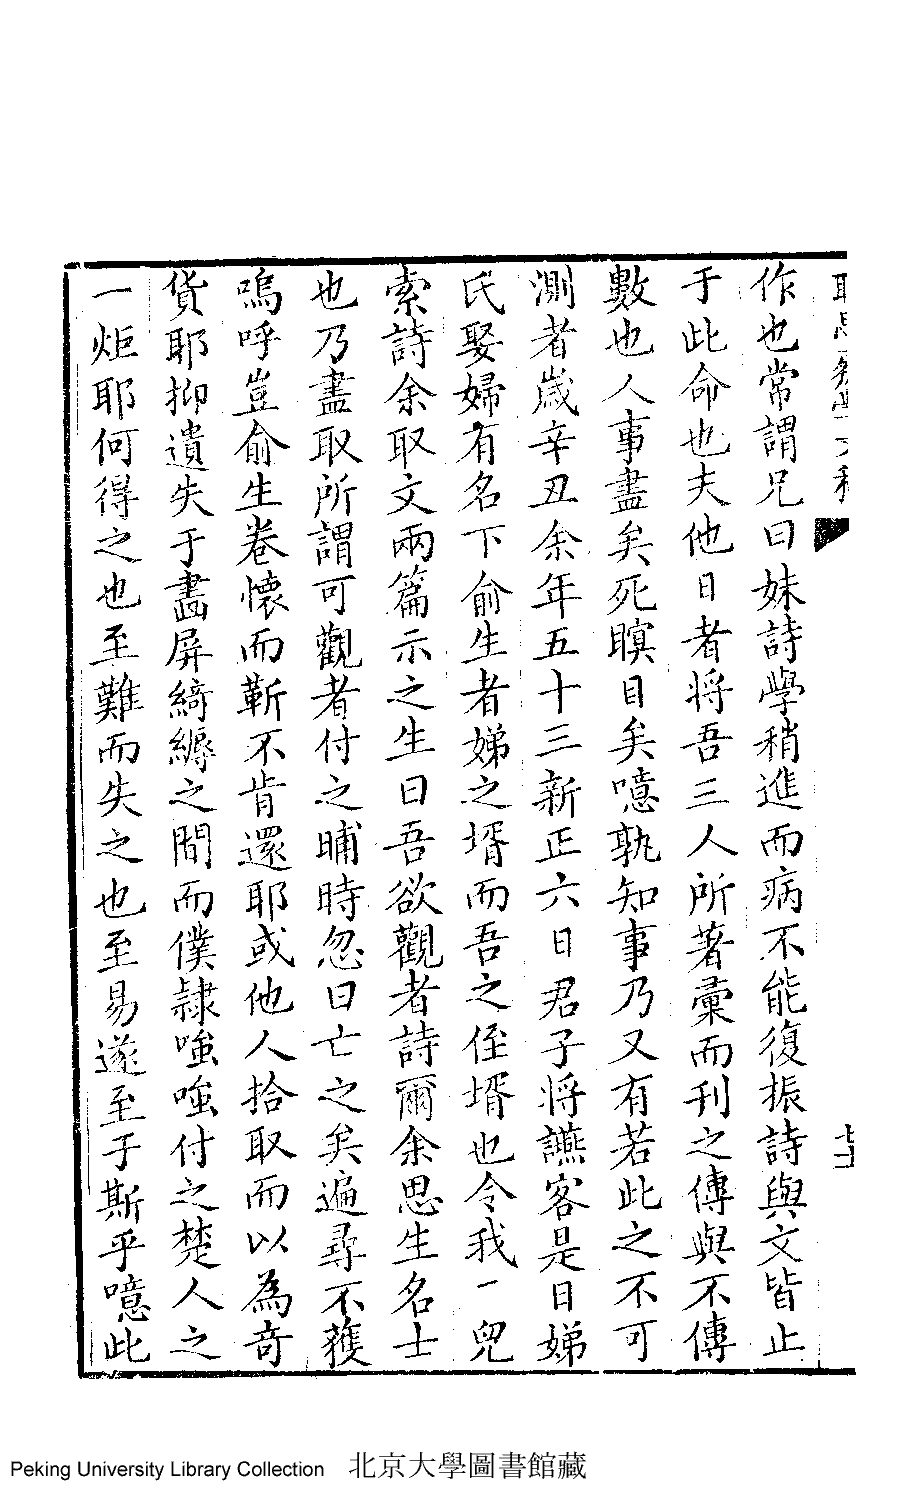 作也常謂兄曰妹詩學稍進而病不能復振詩與文皆止
于此命也夫他日者将吾三人所著彙而刊之傳與不傳
數也人事盡矣死瞑目矣噫孰知事乃又有若此之不可
測者嵗辛丑余年五十三新正六日君子将讌客是日娣
氏娶婦有名下俞生者娣之壻而吾之侄壻也令我一兒
索詩余取文兩篇示之生曰吾欲觀者詩爾余思生名士
也乃盡取所謂可觀者付之晡時忽曰亡之矣遍尋不獲
嗚呼豈俞生卷懷而靳不肯還耶或他人拾取而以為竒
貨耶抑遺失于畵屏綺縟之間而僕隷嗤嗤付之楚人之
一炬耶何得之也至難而失之也至易遂至于斯乎噫此
Peking University Library Collection 北京大學圖書館藏